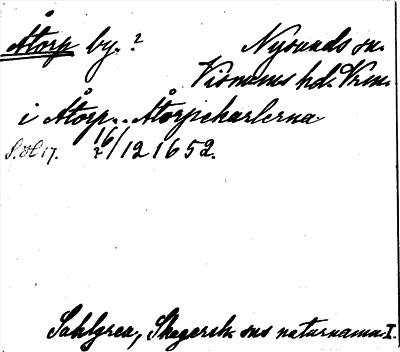 Åtorp by. ? Nysunds sn.
Visnums hd. Vrm.
i Åtorp.. Åtorpekarlerna
16/12 1652.
Sahlgren, Skagersh. sns naturnamn I.